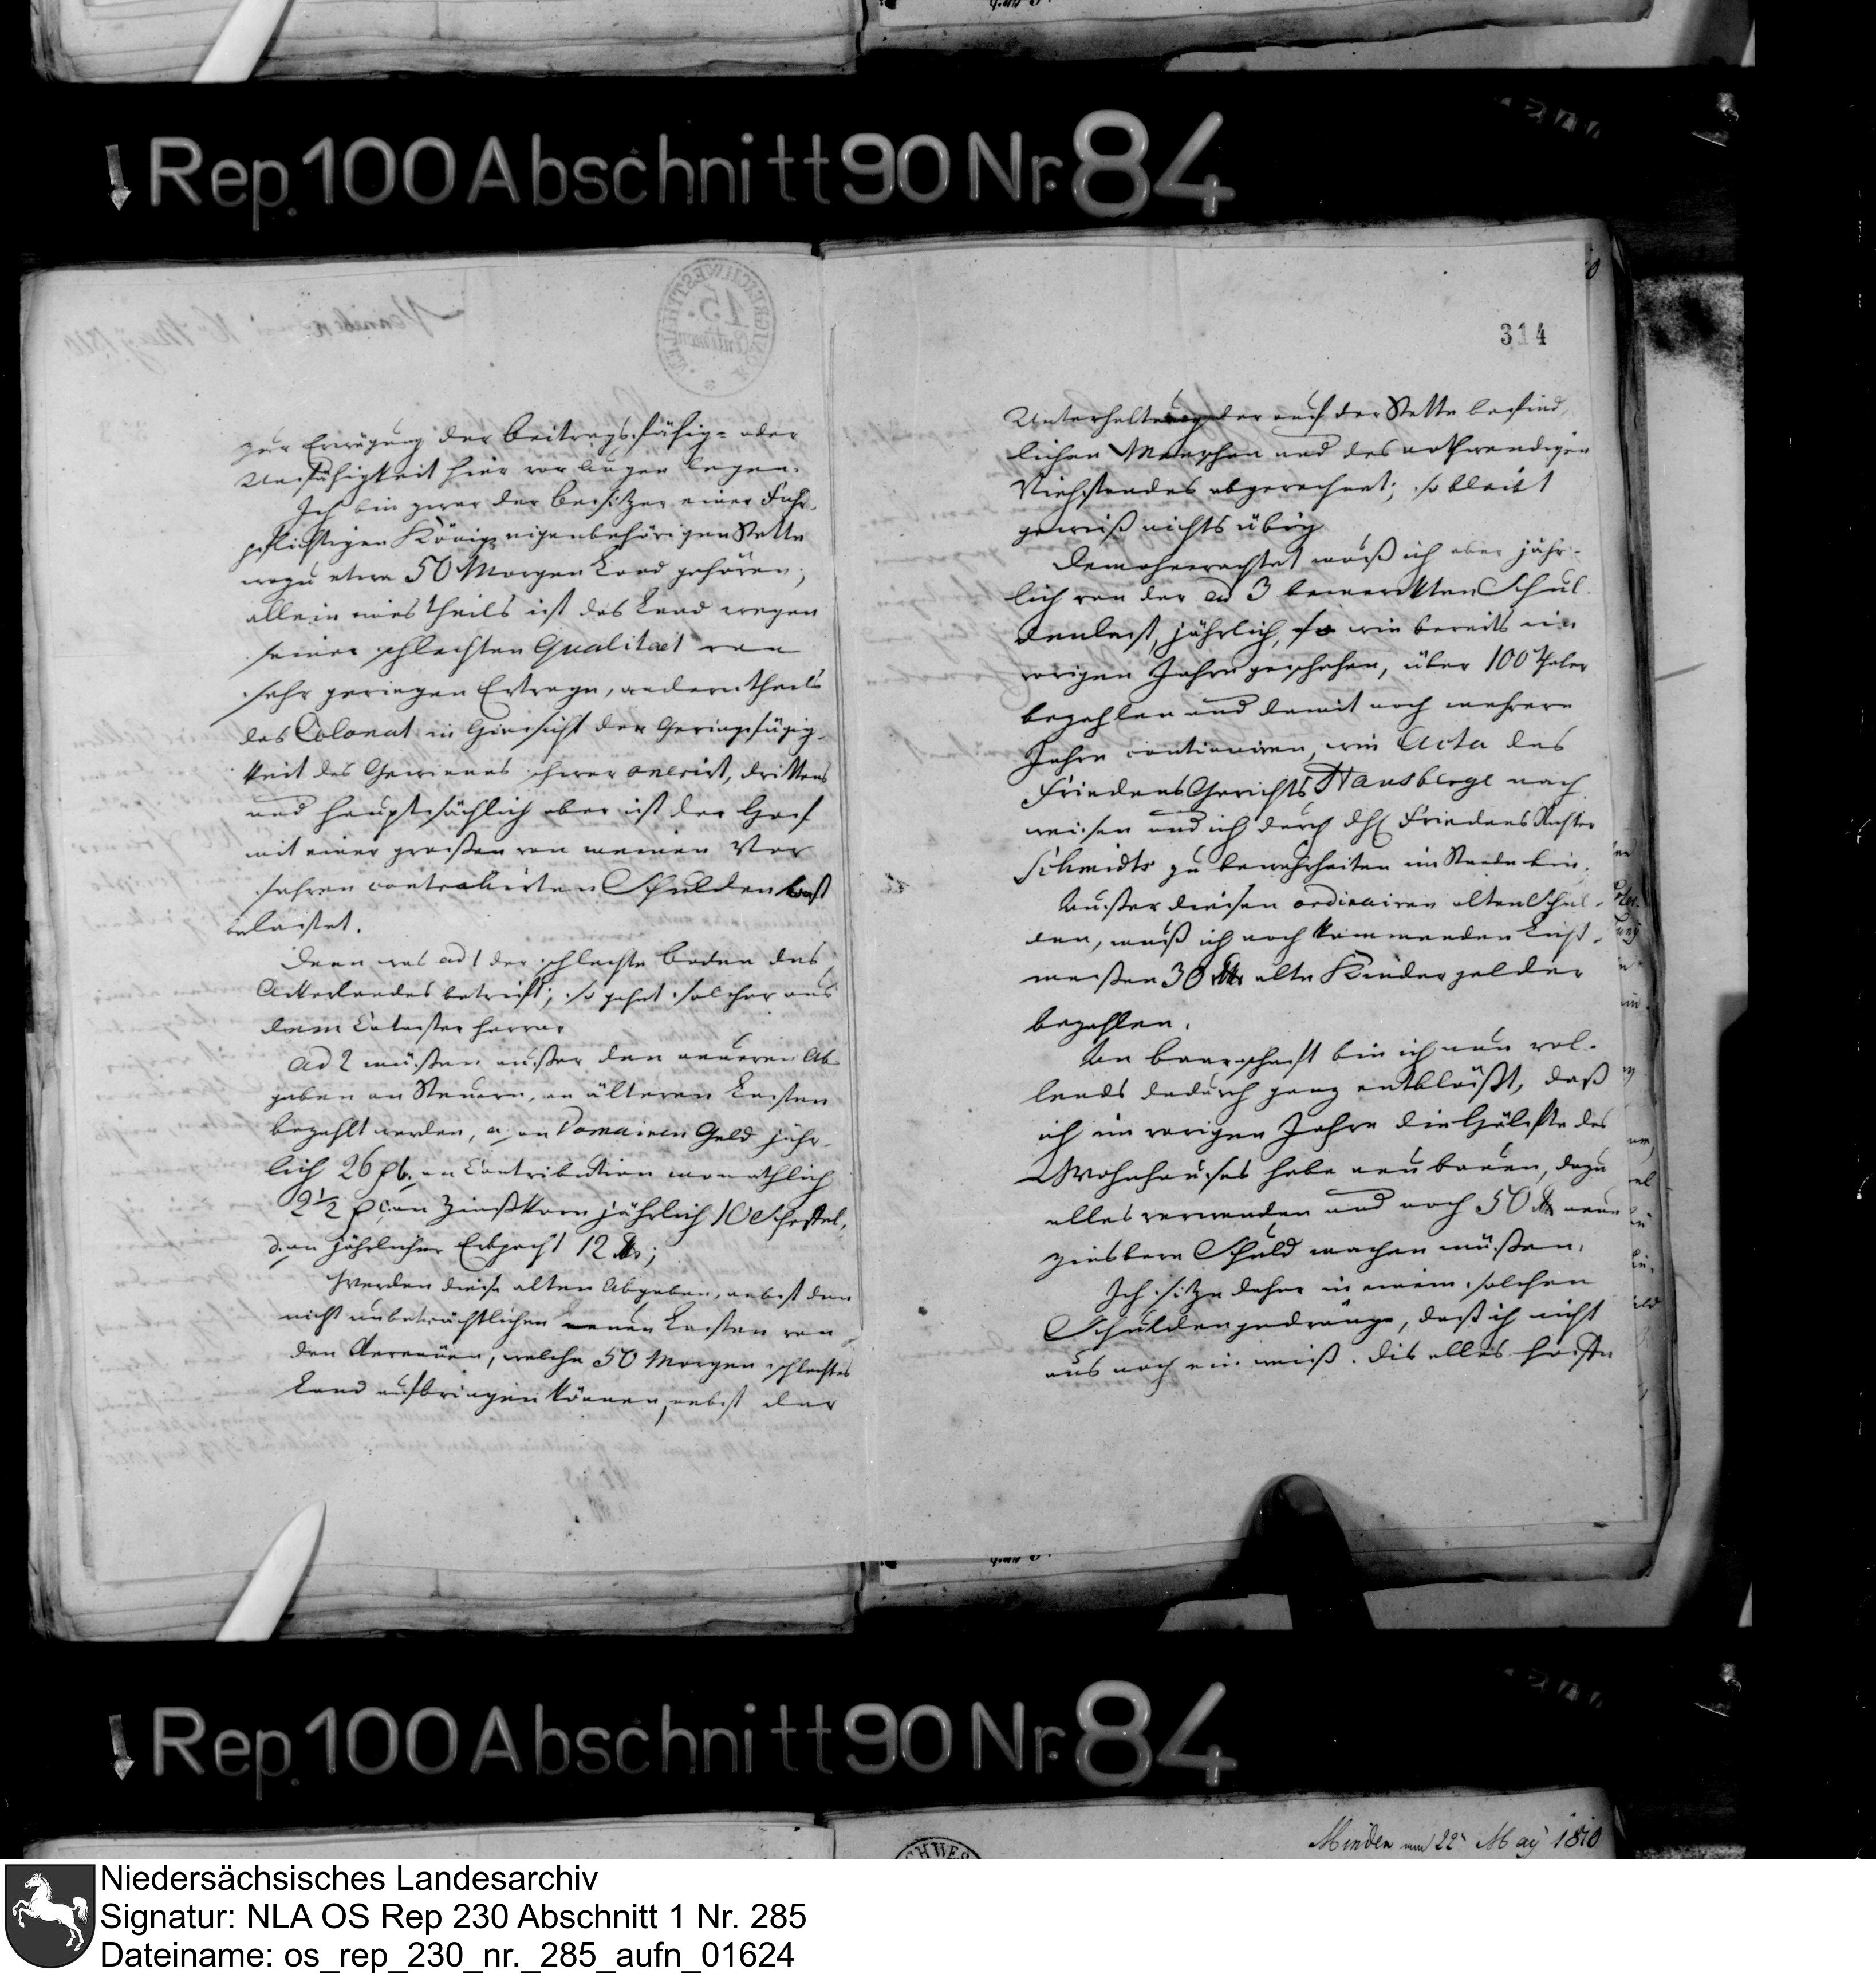 Rep. 100 Abschnitt 90 Nr. 84
314
zur Erwägung der Beitragsfähig= oder
Unfähigkeit hier vor Augen legen.
Ich bin zwar der Besitzer einer Fuhr-
pflichtigen Königl. eigenbehörigen Stette
wozu etwa 50 Morgen Land gehören;
allein eines theils ist das Land wegen
seiner schlechten Qualitaet von
sehr geringen Ertrage, anderntheils
das Colonat in Hinsicht der Geringfügig-
keit des Gewinnes schwer onerirt, drittens
und hauptsächlich aber ist der Hof
mit einer großen von meinen Vor
fahren contrahirten Schuldenlast
belastet.
Denn was ad 1 der schlechte Boden des
Ackerlandes betrift; so gehet solcher aus
dem Cataster hervor
ad 2 müßen außer den neueren Ab
gaben an Steuern, an älteren Lasten
bezahlt werden, a, an Domainen Geld jähr-
lich 26 b, an Contribution monathlich
2½ c, an Zinßkorn jährlich 10 Scheffel,
d, an jährlicher Erbpacht 12 rtlr;
Werden diese alten Abgaben, nebst den
nicht unbeträchtlichen neuen Lasten von
den Revenüen, welche 50 Morgen schlechtes
Land aufbringen können, nebst der
Unterhaltung der auf der Stette befind
lichen Menschen und des nothwendigen
Viehstandes abgerechnet; so bleibt
gewiß nichts übrig
Demohnerachtet muß ich aber jähr-
lich von der ad 3 bemerkten Schul
denlast, jährlich, so wie bereits im
vorigen Jahre geschehen, über 100 Thaler
bezahlen und damit noch mehrere
Jahre continuiren, wie Acta des
FriedensGerichts Hausberge nach
weisen und ich durch den FriedensRichter
Schmidts zu bewahrheiten im Stande bin.
Außer diesen ordinairen alten Schul-
den, muß ich noch kommenden Licht-
meßen 30 rtlr alte Kindergelder
bezahlen.
An Baarschaft bin ich nun vol-
lends dadurch ganz entblößt, daß
ich im vorigen Jahre die Hälfte des
Wohnhauses habe neu bauen, dazu
alles verwenden und noch 50 rtlr neue
zinsbare Schuld machen müßen.
Ich sitze daher in einem solchen
Schuldengedränge, daß ich nicht
aus noch ein weiß. Dis alles hoffte
Rep. 100 Abschnitt 90 Nr. 84
Minden am 22n May 1810
Niedersächsisches Landesarchiv
Signatur: NLA OS Rep 230 Abschnitt 1 Nr. 285
Dateiname: os_rep_230_nr._285_aufn_01624